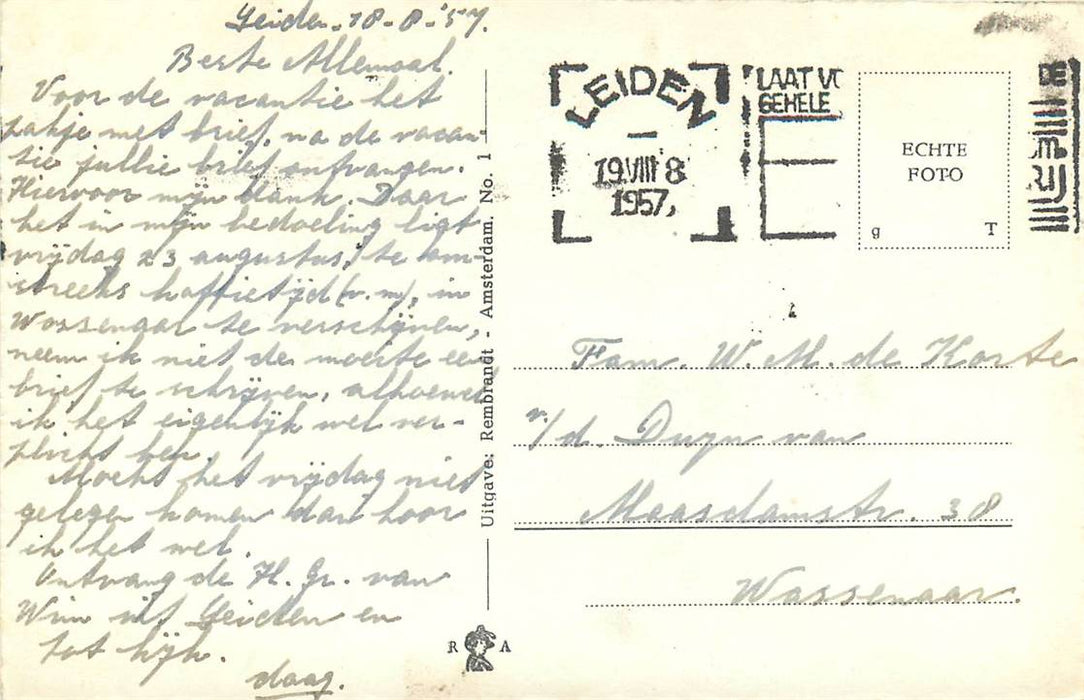 Leiden. 18-8-'57.
Beste Allemaal.
Voor de vacantie het
zakje met brief, na de vacan-
tie jullie brief ontvangen.
Hiervoor mijn dank. Daar
het in mijn bedoeling ligt
vrijdag 23 augustus, te om-
streeks koffietijd (v.m), in
Wassenaar te verschijnen,
neem ik niet de moeite een
brief te schrijven, alhoewel
ik het eigenlijk wel ver-
plicht ben.
Mocht het vrijdag niet
gelegen komen dan hoor
ik het wel.
Ontvang de H. Gr. van
Wim uit Leiden en
tot kijk.
daag.
Uitgave: Rembrandt - Amsterdam. No. 1
R A
LEIDEN
19.VIII 8
1957,
LAAT VO
GEHELE
DE
RIJ
ECHTE
FOTO
g T
Fam. W. M. de Korte
v/d. Duyn van
Maasdamstr. 38
Wassenaar.